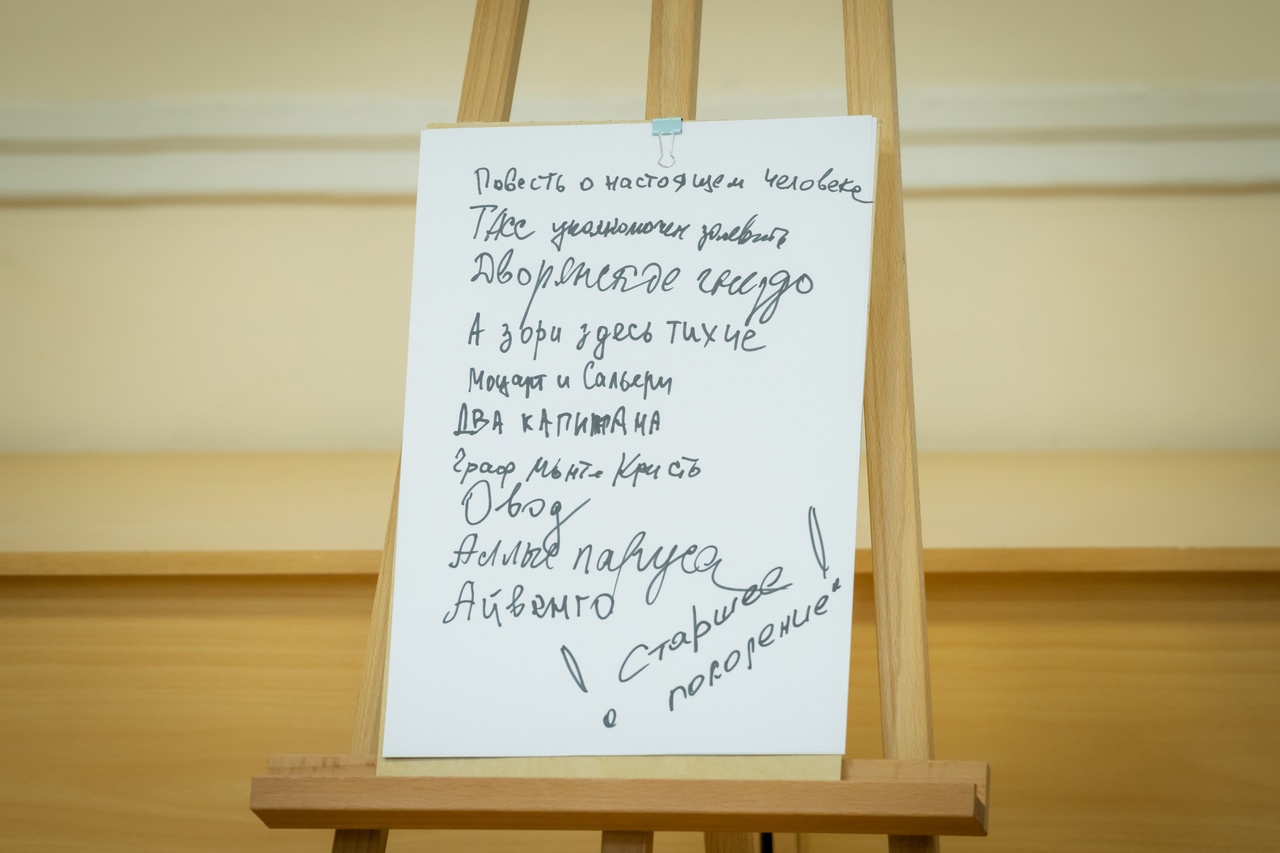 Повесть о настоящем человеке
ТАСС уполномочен заявить
Дворянское гнездо
А зори здесь тихие
Моцарт и Сальери
ДВА КАПИТАНА
Граф Монте Кристо
Овод
Аллые паруса
Айвенго
! Старшее !
поколение